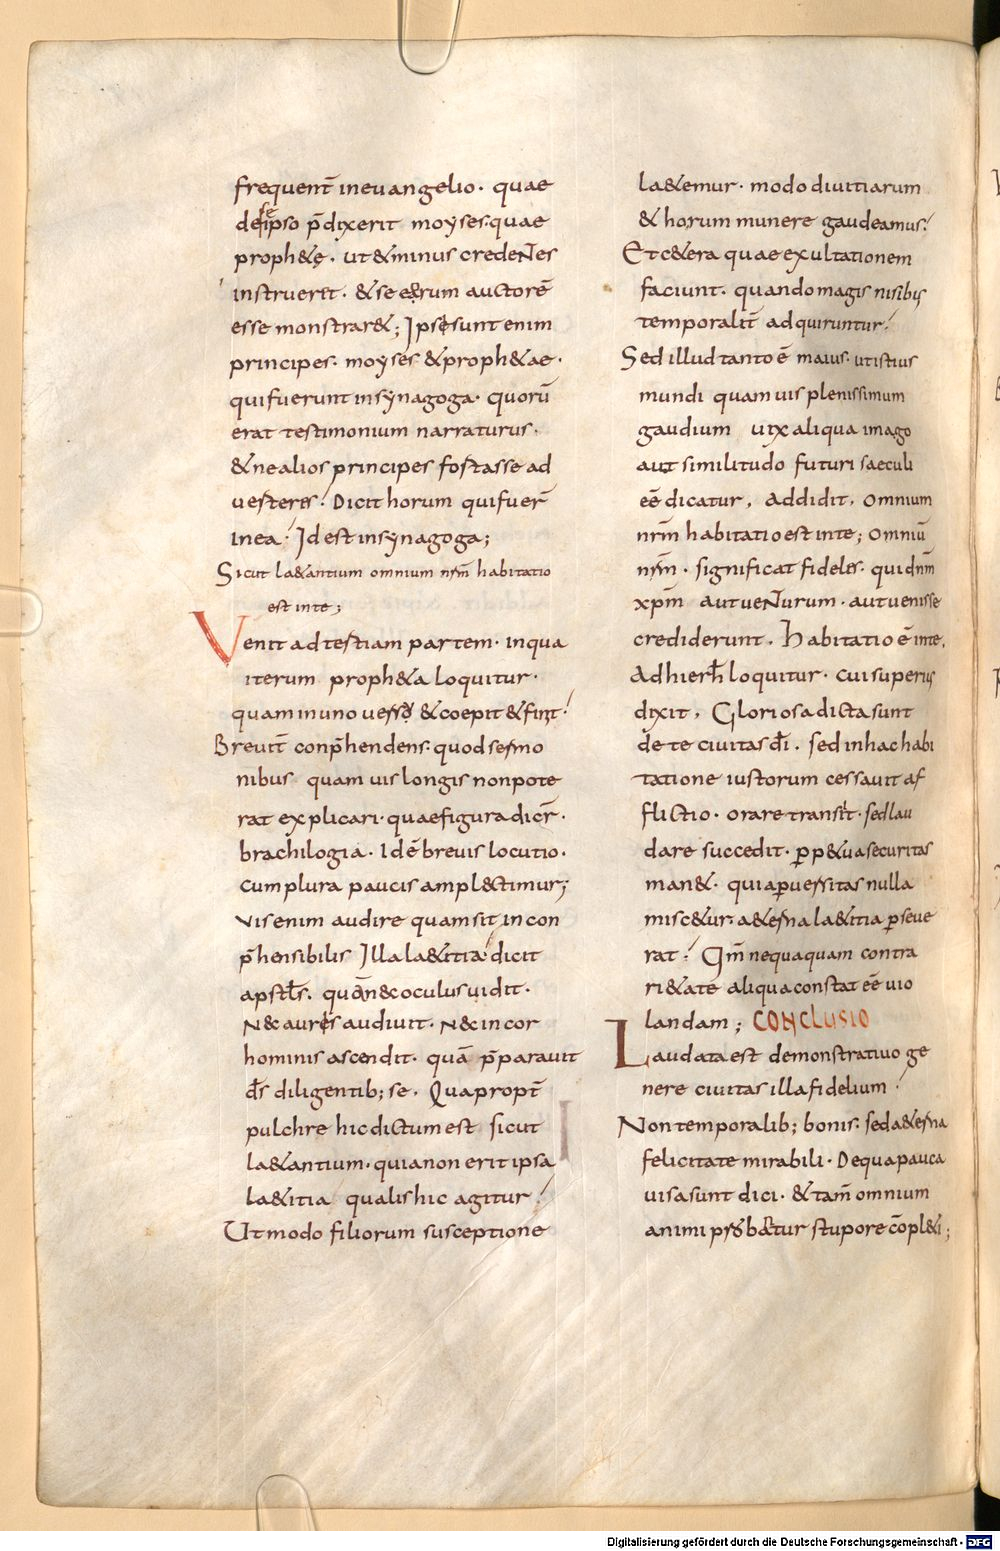 frequent̄ ineuangelio· quae
de seipso p̄dixerit moyses· quae
proph&ę· ut & minus credentes
instruerit· & se eorum auctorē
esse monstrar&; Ipsi sunt enim
principes· moyses & proph&ae·
qui fuerunt in synagoga· quorū
erat testimonium narraturus·
& ne alios principes fostasse ad
uesteres! Dicit horum qui fuer̄
inea! Id est in synagoga;
Sicut la&antium omnium nr̄m habitatio
est inte;
Venit ad testiam partem· in qua
iterum proph&a loquitur·
quam in uno uersu & coepit & finit!
Breuit̄ conp̄hendens· quod sermo
nibus quamuis longis non pote
rat explicari· quae figura dicr̄·
brachilogia· Id ē breuis locutio·
cum plura paucis ampl&timur;
vis enim audire quam sit incon
p̄hensibilis Illa la&itia! dicit
apstl̄s· quā nec oculus uidit·
Nec auris audiuit· Nec in cor
hominis ascendit· quā p̄parauit
d̄s diligentib; se· Qua propt̄
pulchre hic dictum est sicut
la&antium· quia non erit ipsa
la&itia qualis hic agitur!
Ut modo filiorum susceptione
la&emur· modo diuitiarum
& horum munere gaudeamus!
Et c&era quae exultationem
faciunt· quando magis nisibus
temporalit̄ adquiruntur!
Sed illud tanto ē maius· ut istius
mundi quamuis plenissimum
gaudium uix aliqua imago
aut similitudo futuri saeculi
eē dicatur, addidit, omnium
nr̄m habitatio est inte; omniū
nr̄m· significat fideles· qui dn̄m
xp̄m aut uenturum· aut uenisse
crediderunt· Habitatio ē inte,
Ad hierl̄m loquitur· cui superius
dixit, Gloriosa dicta sunt
de te ciuitas dī· sed in hac habi
tatione iustorum cessauit af
flictio· orare transiit· sed lau
dare succedit· perp&ua securitas
man&· quia peruersitas nulla
misc&ur· a&erna la&itia perseue
rat! Qm̄ nequaquam contra
ri&ate aliqua constat eē uio
landam; CONCLUSIO
Laudata est demonstratiuo ge
nere ciuitas illa fidelium!
Non temporalib; bonis· sed a&erna
felicitate mirabili· De qua pauca
uisa sunt dici· & tam̄ omnium
animi probantur stupore cōpl&i;
Digitalisierung gefördert durch die Deutsche Forschungsgemeinschaft - DFG